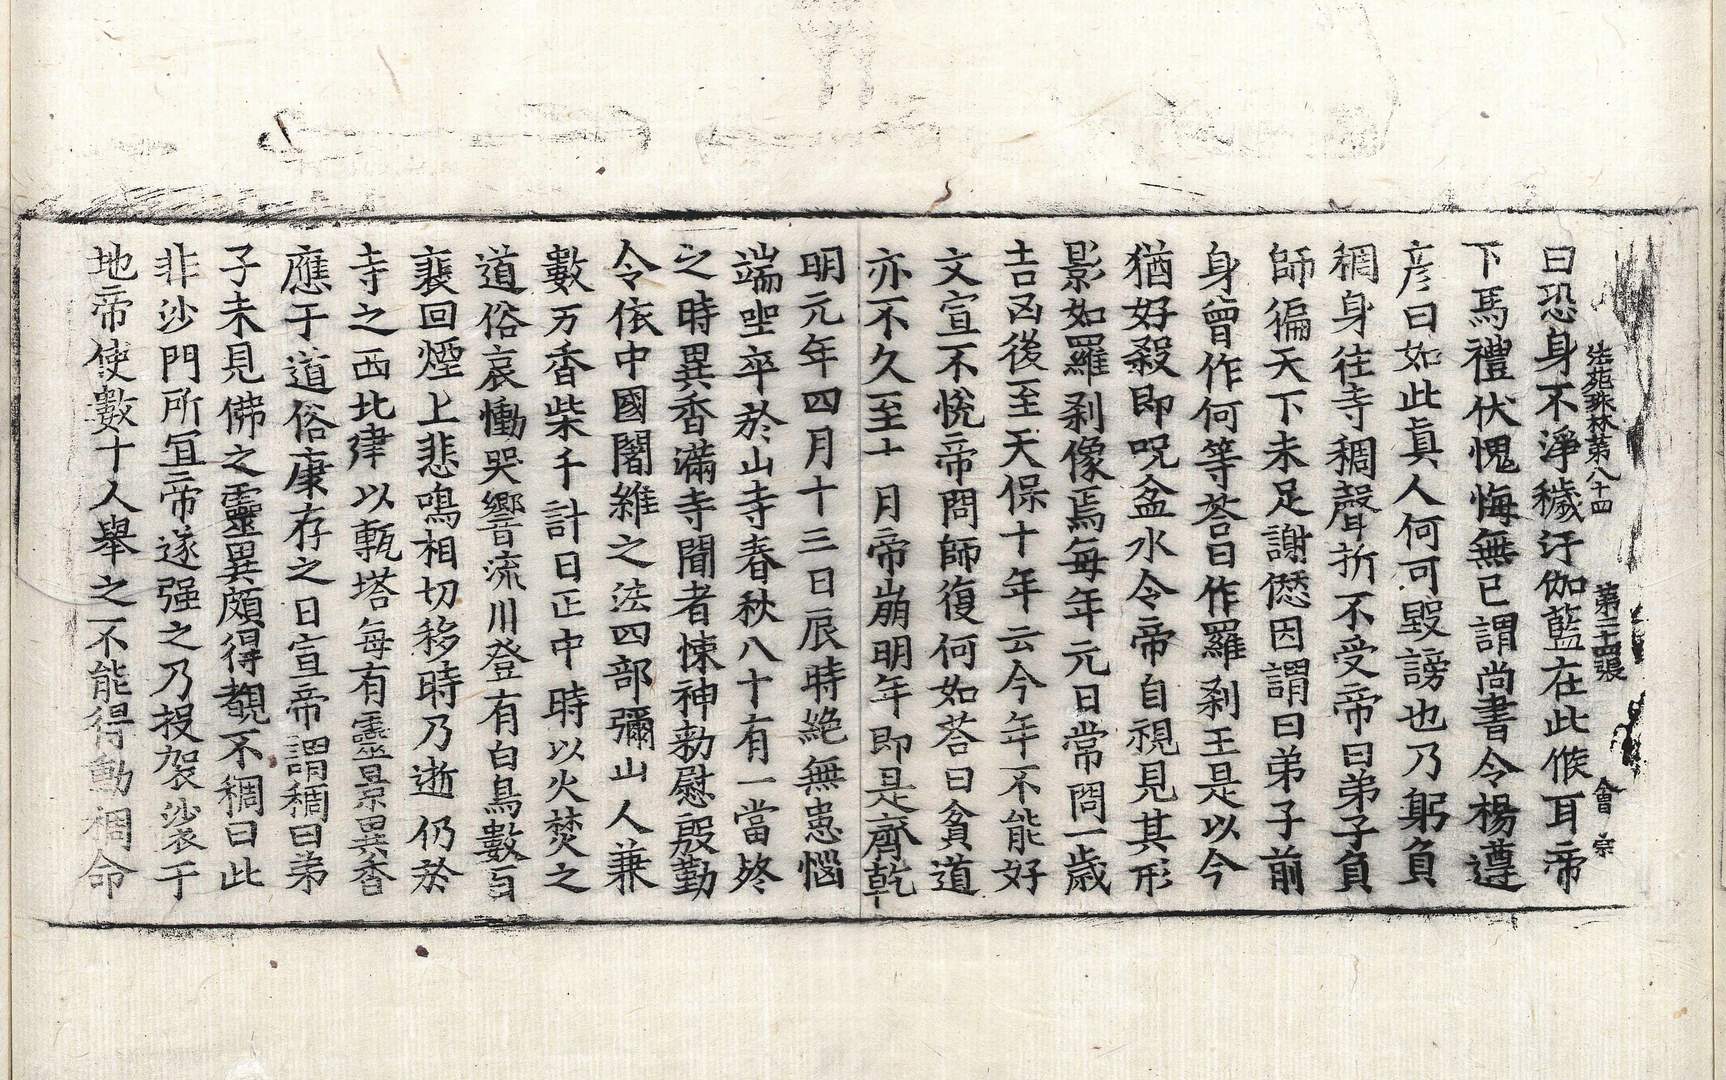 法苑珠林第八十四 第二十四張 會 宗
曰恐身不淨穢汙伽藍在此候耳帝
下馬禮伏愧悔無已謂尚書令楊遵
彦曰如此真人何可毀謗也乃躬負
稠身往寺稠聲折不受帝曰弟子負
師徧天下未足謝僁因謂曰弟子前
身曾作何等荅曰作羅刹王是以今
猶好殺即呪盆水令帝自視見其形
影如羅刹像焉每年元日常問一歲
吉凶後至天保十年云今年不能好
文宣不悅帝問師復何如荅曰貧道
亦不久至十月帝崩明年即是齊乾
明元年四月十三日辰時絶無患惱
端坐卒於山寺春秋八十有一當終
之時異香滿寺聞者悚神勑慰殷勤
令依中國闍維之法四部彌山人兼
數万香柴千計日正中時以火焚之
道俗哀慟哭響流川登有白鳥數百
裵回煙上悲鳴相切移時乃逝仍於
寺之西北建以甎塔每有靈景異香
應于道俗康存之日宣帝謂稠曰弟
子未見佛之靈異頗得覩不稠曰此
非沙門所宜帝遂强之乃投袈裟于
地帝使數十人舉之不能得動稠命